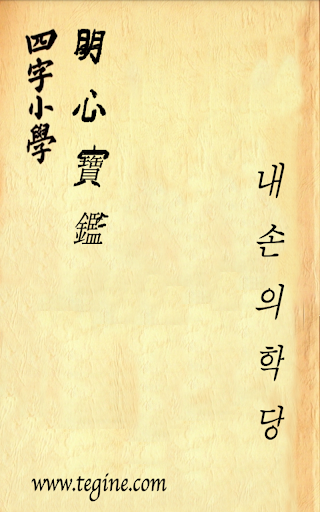 四字小學
明心寶鑑
내손의학당
www.tegine.com